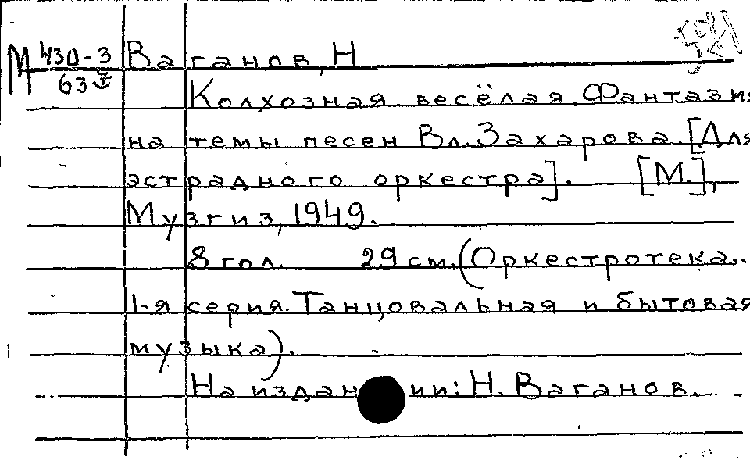 М 430-3 Ваганов, Н
63
Колхозная весёлая. Фантазия
на темы песен Вл. Захарова. [Для
эстрадного оркестра]. [М.],
Музгиз, 1949.
8 гол. 29 см. (Оркестротека.
1-я серия. Танцовальная и бытовая
музыка).
На издании: Н. Ваганов.